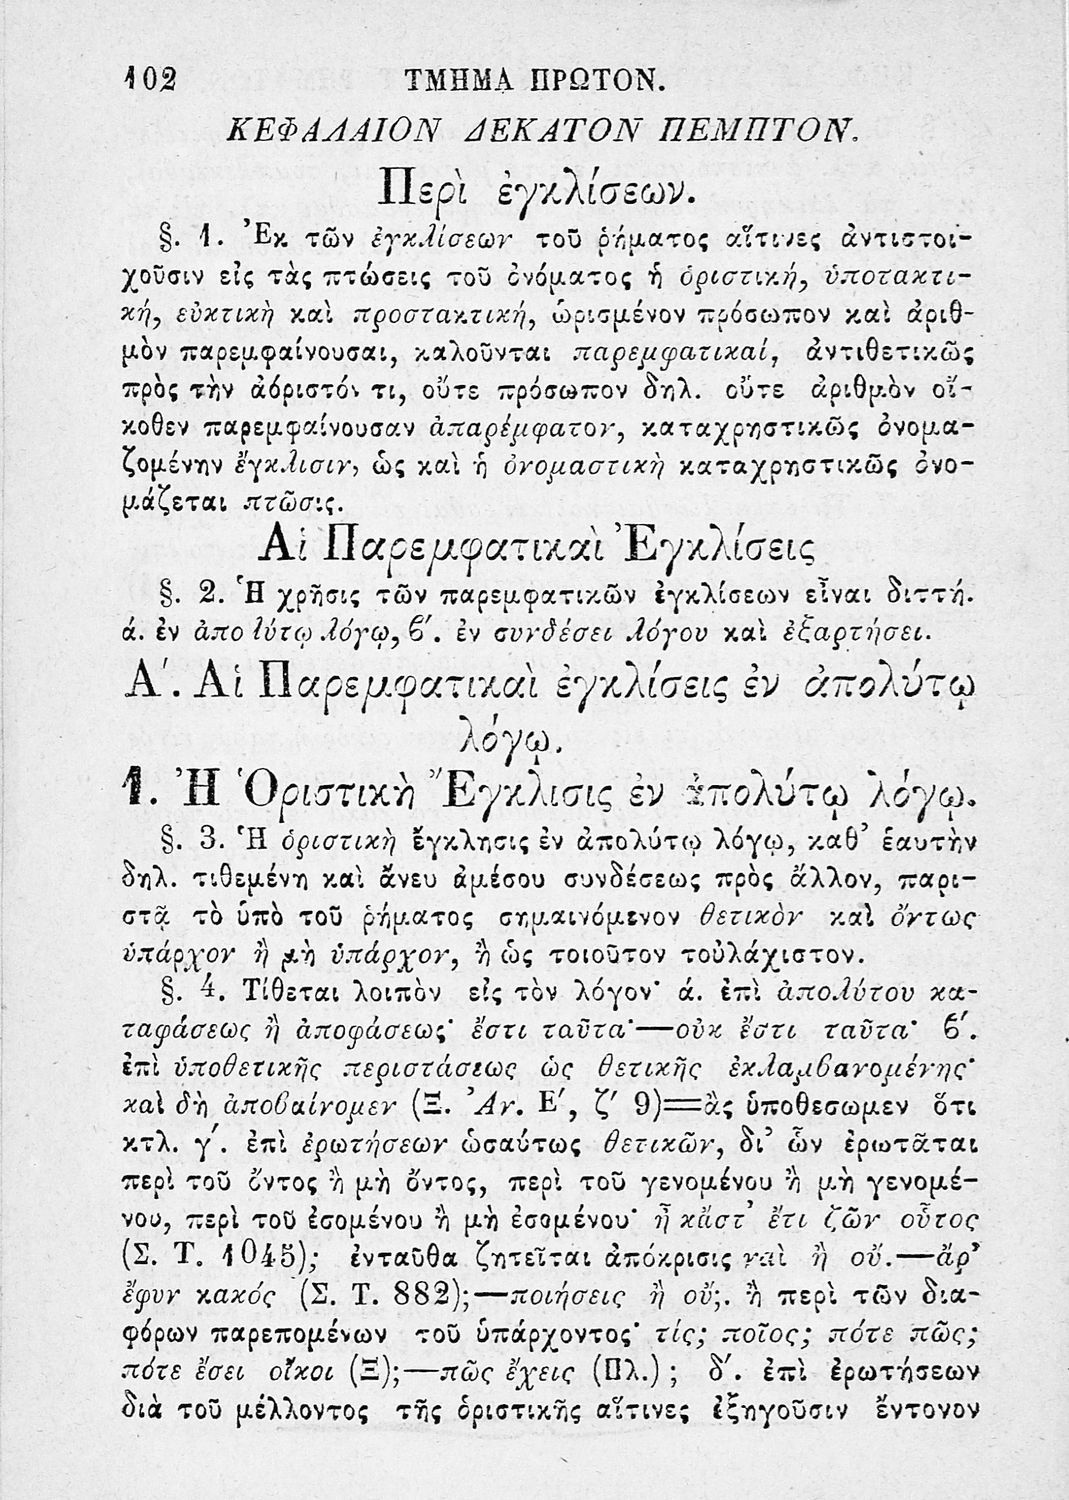 102 ΤΜΗΜΑ ΠΡΩΤΟΝ.
ΚΕΦΑΛΑΙΟΝ ΔΕΚΑΤΟΝ ΠΕΜΠΤΟΝ.
Περὶ ἐγκλίσεων.
§. 1. Ἐκ τῶν ἐγκλίσεων τοῦ ῥήματος αἵτινες ἀντιστοι-
χοῦσιν εἰς τὰς πτώσεις τοῦ ὀνόματος ἡ ὁριστική, ὑποτακτι-
κή, εὐκτικὴ καὶ προστακτική, ὡρισμένον πρόσωπον καὶ ἀριθ-
μὸν παρεμφαίνουσαι, καλοῦνται παρεμφατικαί, ἀντιθετικῶς
πρὸς τὴν ἀόριστόν τι, οὔτε πρόσωπον δηλ. οὔτε ἀριθμὸν οἴ-
κοθεν παρεμφαίνουσαν ἀπαρέμφατον, καταχρηστικῶς ὀνομα-
ζομένην ἔγκλισιν, ὡς καὶ ἡ ὀνομαστικὴ καταχρηστικῶς ὀνο-
μάζεται πτῶσις.
Αἱ Παρεμφατικαὶ Ἐγκλίσεις
§. 2. Ἡ χρῆσις τῶν παρεμφατικῶν ἐγκλίσεων εἶναι διττή.
ά. ἐν ἀπολύτῳ λόγῳ, β´. ἐν συνδέσει λόγου καὶ ἐξαρτήσει.
Α´. Αἱ Παρεμφατικαὶ ἐγκλίσεις ἐν ἀπολύτῳ
λόγῳ.
1. Ἡ Ὁριστικὴ Ἔγκλισις ἐν ἀπολύτῳ λόγῳ.
§. 3. Ἡ ὁριστικὴ ἔγκλησις ἐν ἀπολύτῳ λόγῳ, καθ' ἑαυτὴν
δηλ. τιθεμένη καὶ ἄνευ ἀμέσου συνδέσεως πρὸς ἄλλον, παρι-
στᾷ τὸ ὑπὸ τοῦ ῥήματος σημαινόμενον θετικὸν καὶ ὄντως
ὑπάρχον ἢ μὴ ὑπάρχον, ἢ ὡς τοιοῦτον τοὐλάχιστον.
§. 4. Τίθεται λοιπὸν εἰς τὸν λόγον· ά. ἐπὶ ἀπολύτου κα-
ταφάσεως ἢ ἀποφάσεως· ἔστι ταῦτα·—οὐκ ἔστι ταῦτα· β´.
ἐπὶ ὑποθετικῆς περιστάσεως ὡς θετικῆς ἐκλαμβανομένης·
καὶ δὴ ἀποβαίνομεν (Ξ. Ἀν. Ε´, ζ´ 9)=ἂς ὑποθεσωμεν ὅτι
κτλ. γ´. ἐπὶ ἐρωτήσεων ὡσαύτως θετικῶν, δι' ὧν ἐρωτᾶται
περὶ τοῦ ὄντος ἢ μὴ ὄντος, περὶ τοῦ γενομένου ἢ μὴ γενομέ-
νου, περὶ τοῦ ἐσομένου ἢ μὴ ἐσομένου· ἦ κἄστ' ἔτι ζῶν οὗτος
(Σ. Τ. 1045); ἐνταῦθα ζητεῖται ἀπόκρισις ναὶ ἢ οὔ.—ἆρ'
ἔφυν κακός (Σ. Τ. 882);—ποιήσεις ἢ οὔ;. ἢ περὶ τῶν δια-
φόρων παρεπομένων τοῦ ὑπάρχοντος· τίς; ποῖος; πότε πῶς;
πότε ἔσει οἴκοι (Ξ);—πῶς ἔχεις (Πλ.); δ´. ἐπὶ ἐρωτήσεων
διὰ τοῦ μέλλοντος τῆς ὁριστικῆς αἵτινες ἐξηγοῦσιν ἔντονον